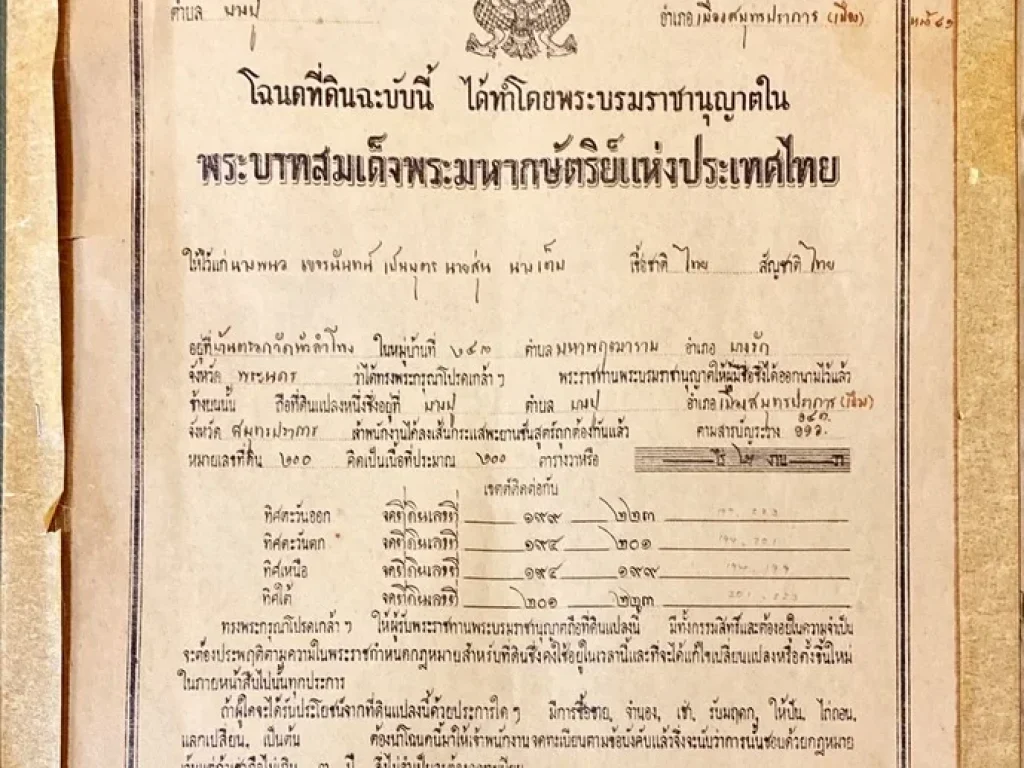 ตำบล บางปู อำเภอ เมืองสมุทรปราการ (เมือง)
โฉนดที่ดินฉะบับนี้ ได้ทำโดยพระบรมราชานุญาตใน
พระบาทสมเด็จพระมหากษัตริย์แห่งประเทศไทย
ให้ไว้แก่ เป็นบุตร เชื้อชาติ ไทย สัญชาติ ไทย
อยู่ที่ ในหมู่บ้านที่ ตำบล มหาพฤฒาราม อำเภอ บางรัก
จังหวัด พระนคร ว่าได้ทรงพระกรุณาโปรดเกล้า ฯ พระราชทานพระบรมราชานุญาตให้ผู้มีชื่อซึ่งได้ออกนามไว้แล้ว
ข้างบนนั้น ถือที่ดินแปลงหนึ่งซึ่งอยู่ที่ บางปู ตำบล บางปู อำเภอ เมืองสมุทรปราการ (เมือง)
จังหวัด สมุทรปราการ เจ้าพนักงานได้ลงเส้นกระแสพะยานชันสูตร์ถูกต้องกันแล้ว ตามสารบัญระวาง
หมายเลขที่ดิน ๒๐๐ คิดเป็นเนื้อที่ประมาณ ๒๐๐ ตารางวาหรือ ไร่ งาน วา
เขตต์ติดต่อกับ
ทิศตะวันออก จดที่ดินเลขที่ ๑๙๙ ๒๒๓
ทิศตะวันตก จดที่ดินเลขที่ ๑๙๔ ๒๐๑
ทิศเหนือ จดที่ดินเลขที่ ๑๙๔ ๑๙๙
ทิศใต้ จดที่ดินเลขที่ ๒๐๑ ๒๒๓
ทรงพระกรุณาโปรดเกล้า ฯ ให้ผู้รับพระราชทานพระบรมราชานุญาตถือที่ดินแปลงนี้ มีทั้งกรรมสิทธิ์และต้องอยู่ในความจำเป็น
จะต้องประพฤติตามความในพระราชกำหนดกฎหมายสำหรับที่ดินซึ่งคงใช้อยู่ในเวลานี้และที่จะได้แก้ไขเปลี่ยนแปลงหรือตั้งขึ้นใหม่
ในภายหน้าสืบไปนั้นทุกประการ
ถ้าผู้ใดจะได้รับประโยชน์จากที่ดินแปลงนี้ด้วยประการใด ๆ มีการซื้อขาย, จำนอง, เช่า, รับมฤดก, ให้ปัน, ไถ่ถอน,
แลกเปลี่ยน, เป็นต้น ต้องนำโฉนดนี้มาให้เจ้าพนักงานจดทะเบียนตามข้อบังคับแล้วจึ่งจะนับว่าการนั้นชอบด้วยกฎหมาย